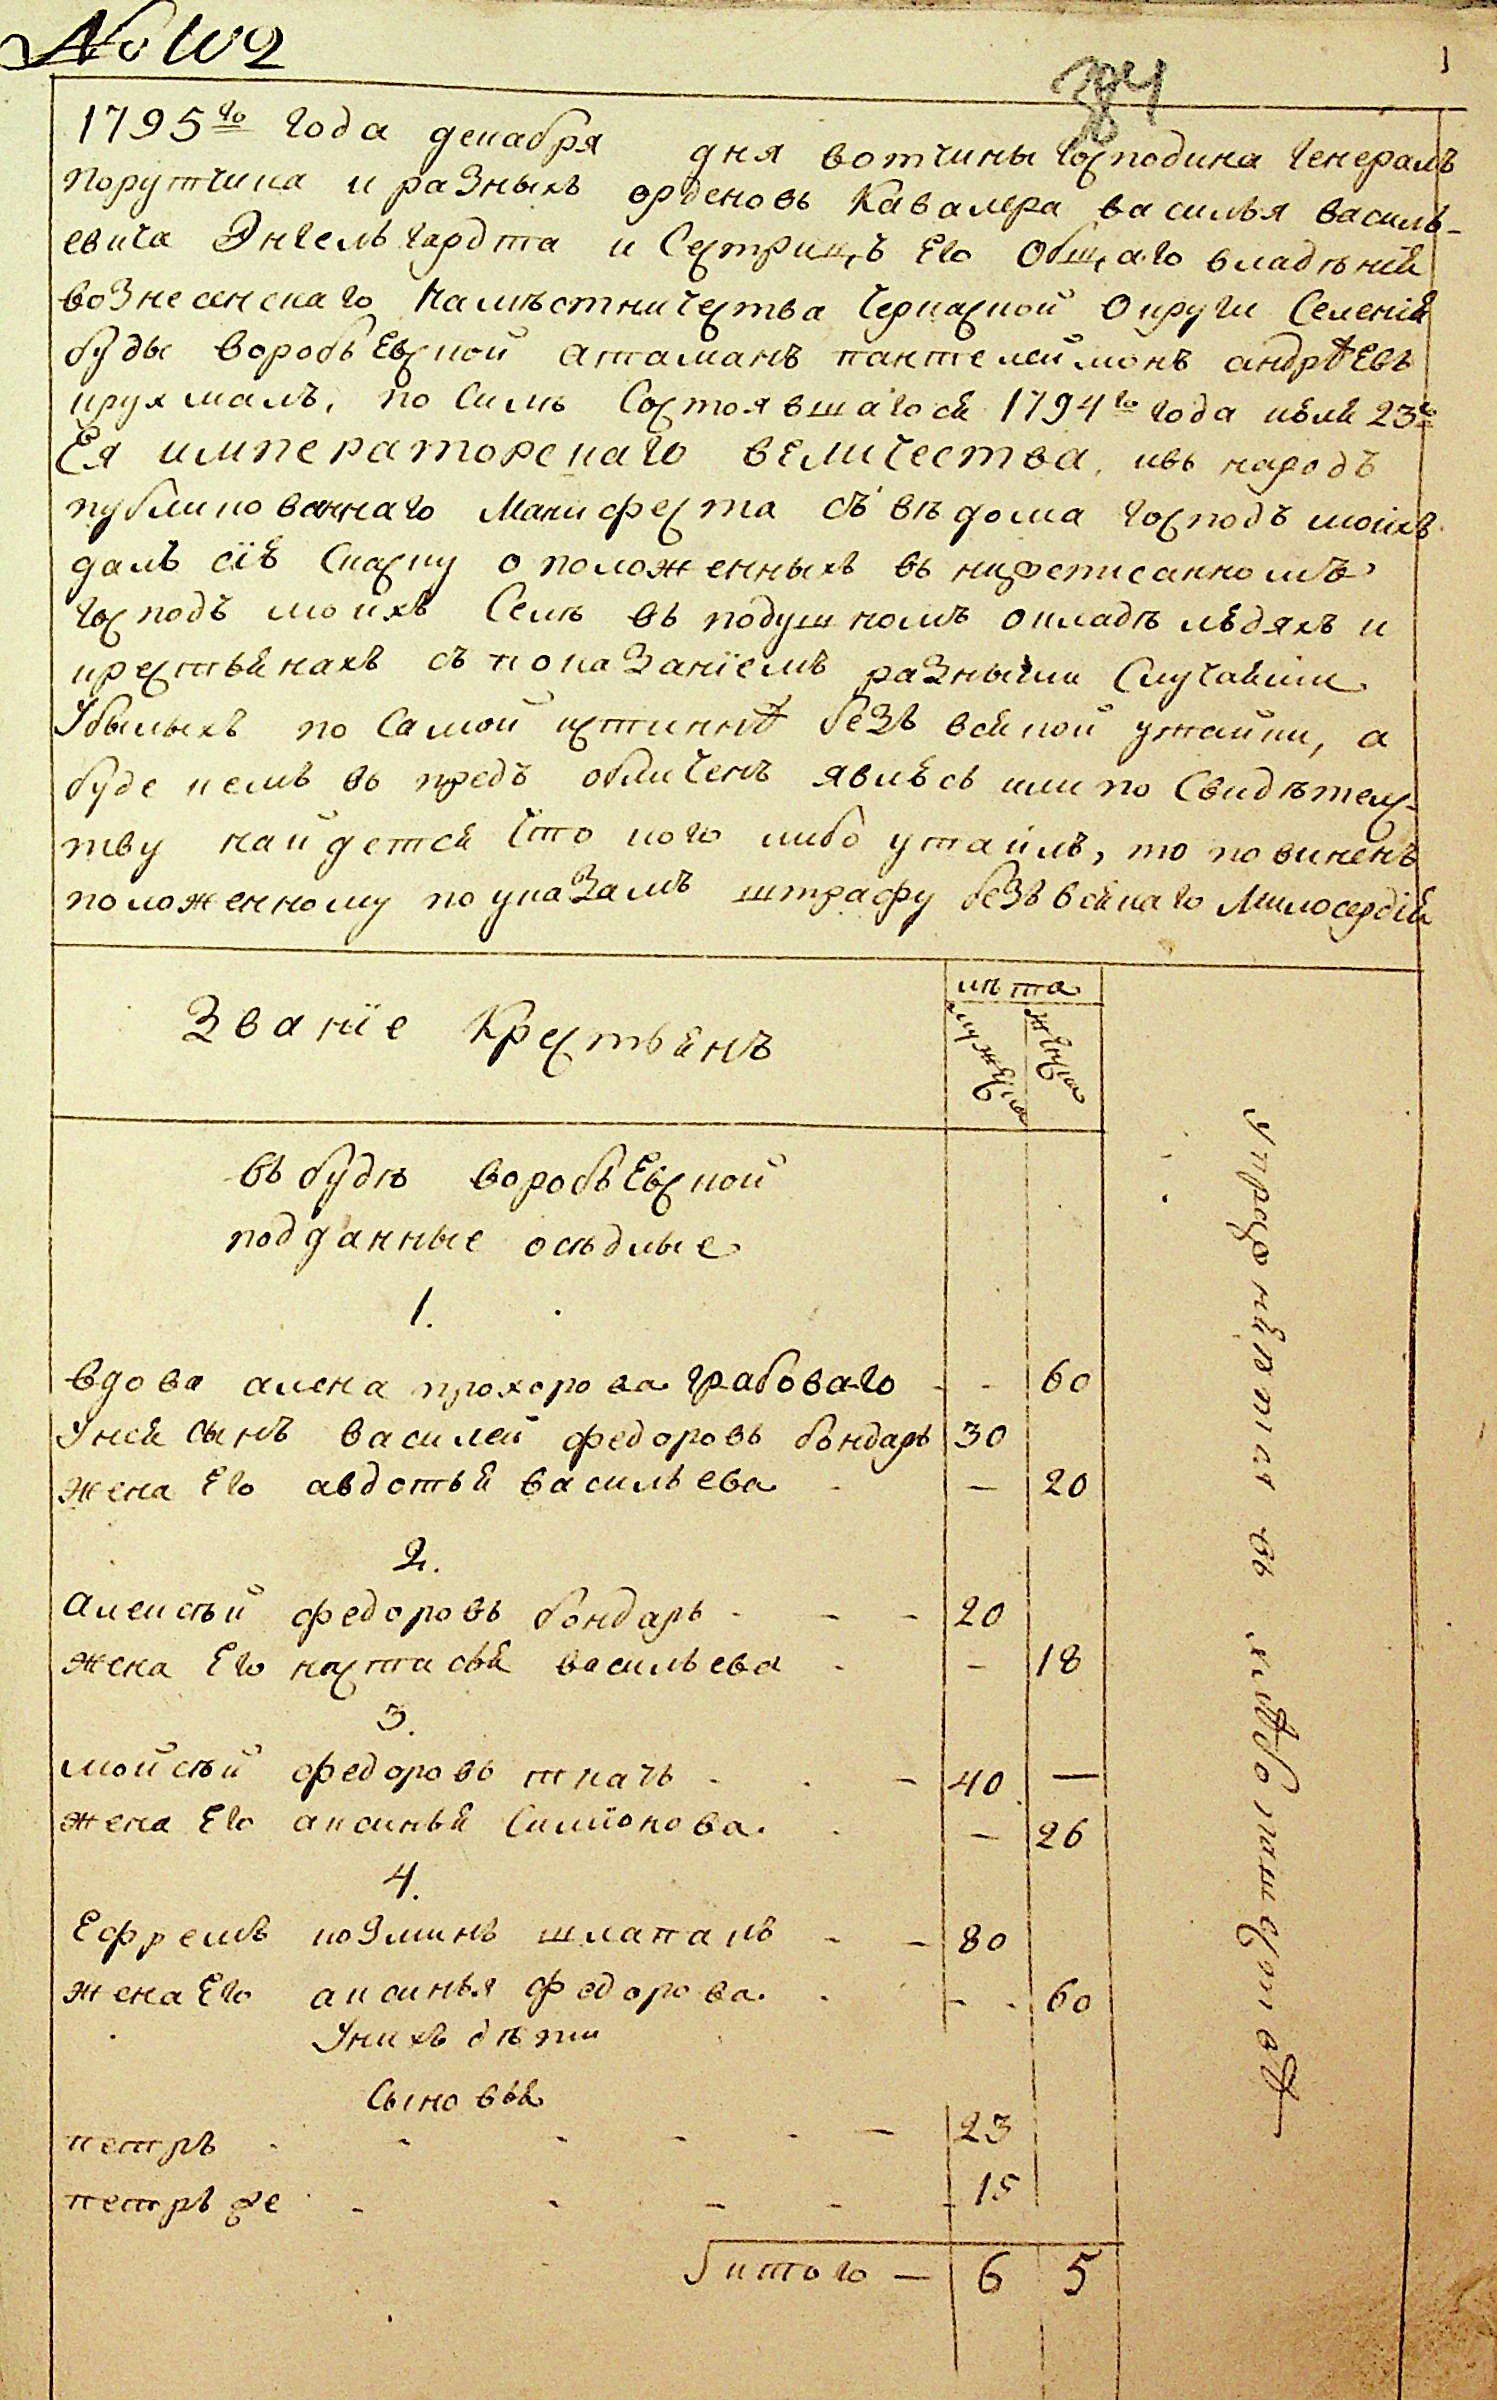 № 102
384
1
1795го года декабря дня вотчины господина генералъ
порутчика и разныхъ орденовъ кавалера василья василь-
евича Энгельгардта и Сестрицъ Его Общаго владѣнія
вознесенскаго намѣстничества Черкаской Округи Селенія
буды воробьЕвской атаманъ пантелеймонъ андрѣЕвъ
крухмалъ, по Силѣ Состоявшагося 1794го года июля 23го
Ея императорскаго вЕличества, ивъ народъ
публикованнаго Манифеста съ вѣдома господъ моихъ
далъ сію Скаску о положенныхъ въ нижеписанномъ
господъ моихъ Селѣ въ подушномъ окладѣ людяхъ и
крестьянахъ съ показанїемъ разными Случаями
Убылыхъ по Самой истиннѣ безъ всякой утайки, а
буде кемъ въ предъ обличенъ явлюсь или по Свидѣтелс-
тву найдется что кого либо утаилъ, то повиненъ
положенному по указамъ штрафу безъ всякаго Милосердія
Званїе Крестьянъ
лѣта
мужеска
женска
въ будѣ воробьЕвской
подданные осѣдлые
1.
вдова алена прохорова грабоваго - - 60
У ней сынъ василей федоровъ бондарь 30
жена Его авдотья васильева - — 20
2.
алексѣй федоровъ бондарь - - - 20
жена Его настасья васильева - - 18
3.
мойсѣй федоровъ ткачь - . - 40 —
жена Его аксинья Симіонова . . — 26
4.
Ефремъ козминъ шлапакъ - - 80
жена Его аксинья федорова . . - . 60
У нихъ дѣти
Сыновья
петръ - - - - - — 23
петръ же - - - - - 15
итого — 6 5
въ